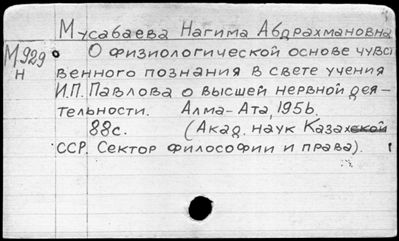 Мусабаева Нагима Абдрахмановна
М929 О физиологической основе чувст
н венного познания в свете учения
И.П. Павлова о высшей нервной дея-
тельности. Алма-Ата, 1956.
88с. (Акад. наук Казахской
ССР. Сектор философии и права).